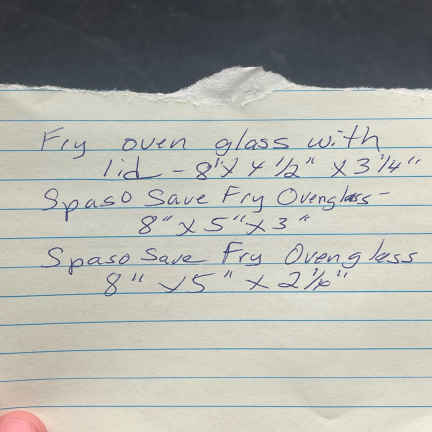 Fry oven glass with
lid - 8" x 4 1/2" x 3 1/4"
Spaso Save Fry Ovenglass -
8" x 5" x 3"
Spaso Save Fry Ovenglass
8" x 5" x 2